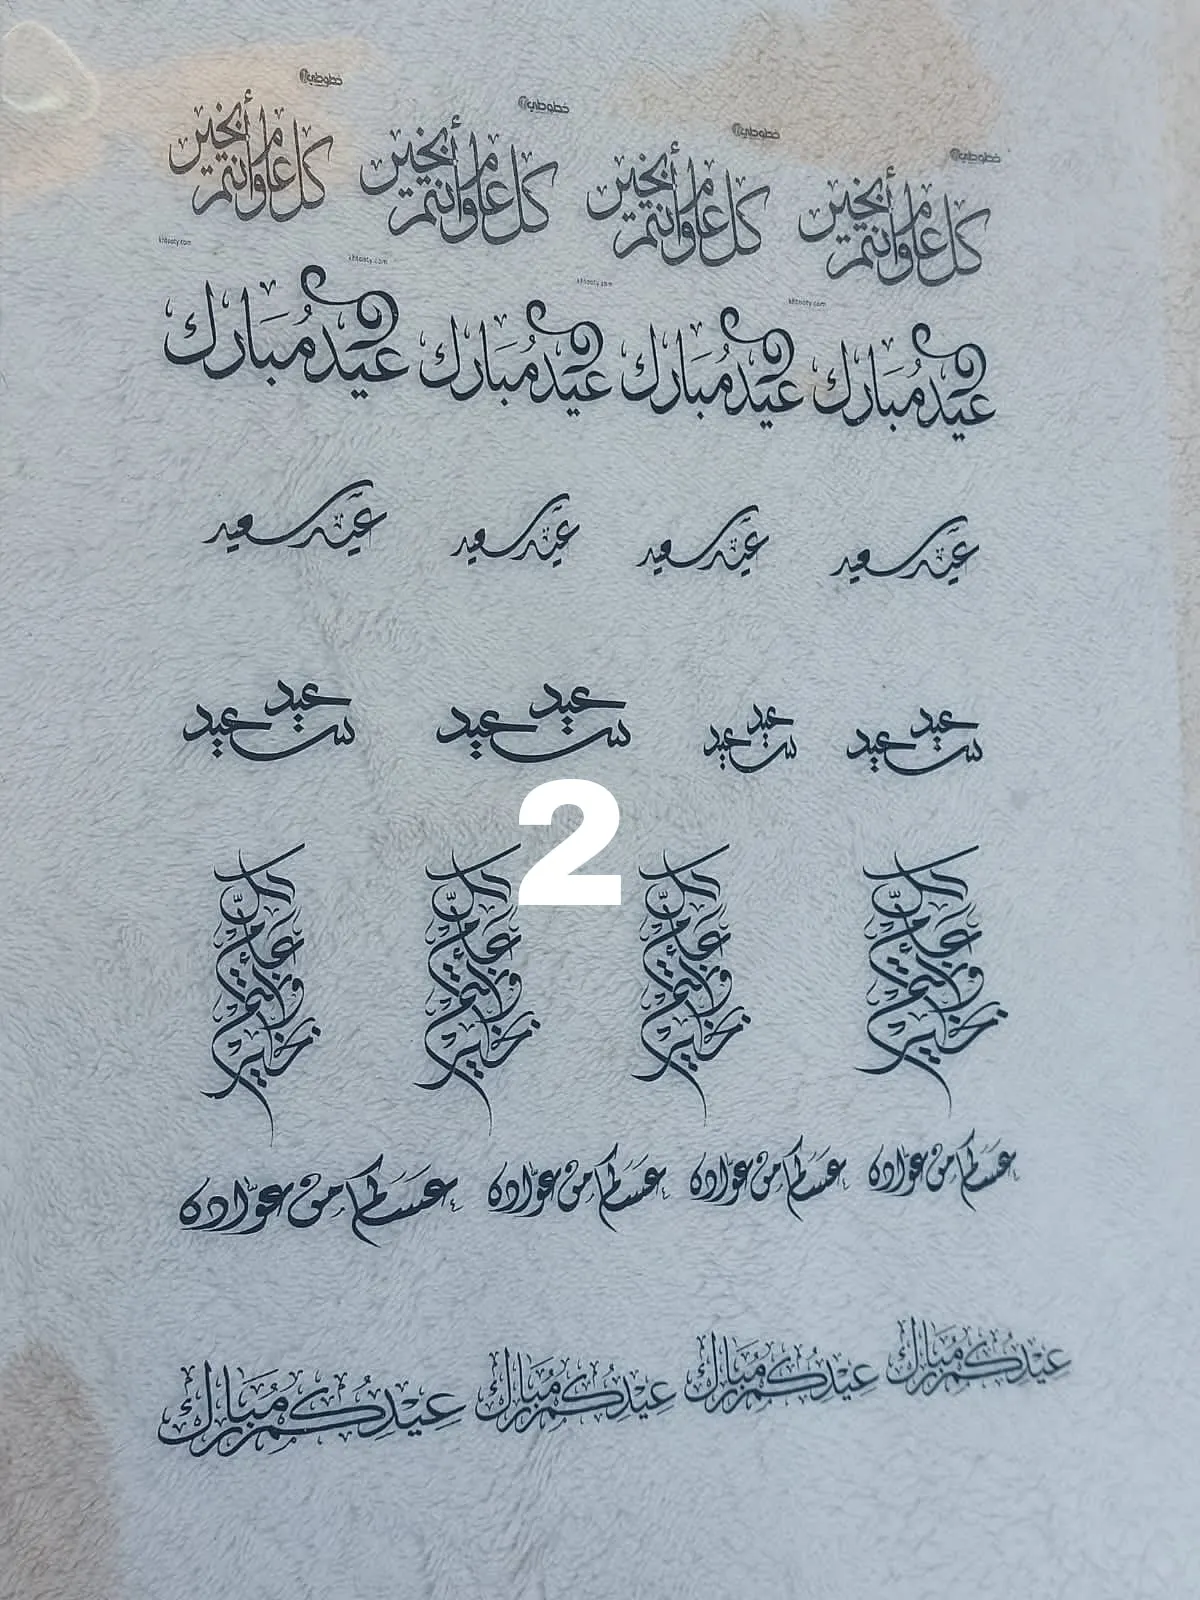 خطوطي خطوطي خطوطي خطوطي
كل عام وأنتم بخير كل عام وأنتم بخير كل عام وأنتم بخير كل عام وأنتم بخير
khtooty.com khtooty.com khtooty.com khtooty.com
عيد مُبارك عيد مُبارك عيد مُبارك عيد مُبارك
عيد سعيد عيد سعيد عيد سعيد عيد سعيد
عيد سعيد عيد سعيد عيد سعيد عيد سعيد
2
كل عام وأنتم بخير كل عام وأنتم بخير كل عام وأنتم بخير كل عام وأنتم بخير
عساكم من عوّاده عساكم من عوّاده عساكم من عوّاده عساكم من عوّاده
عيدكم مبارك عيدكم مبارك عيدكم مبارك عيدكم مبارك